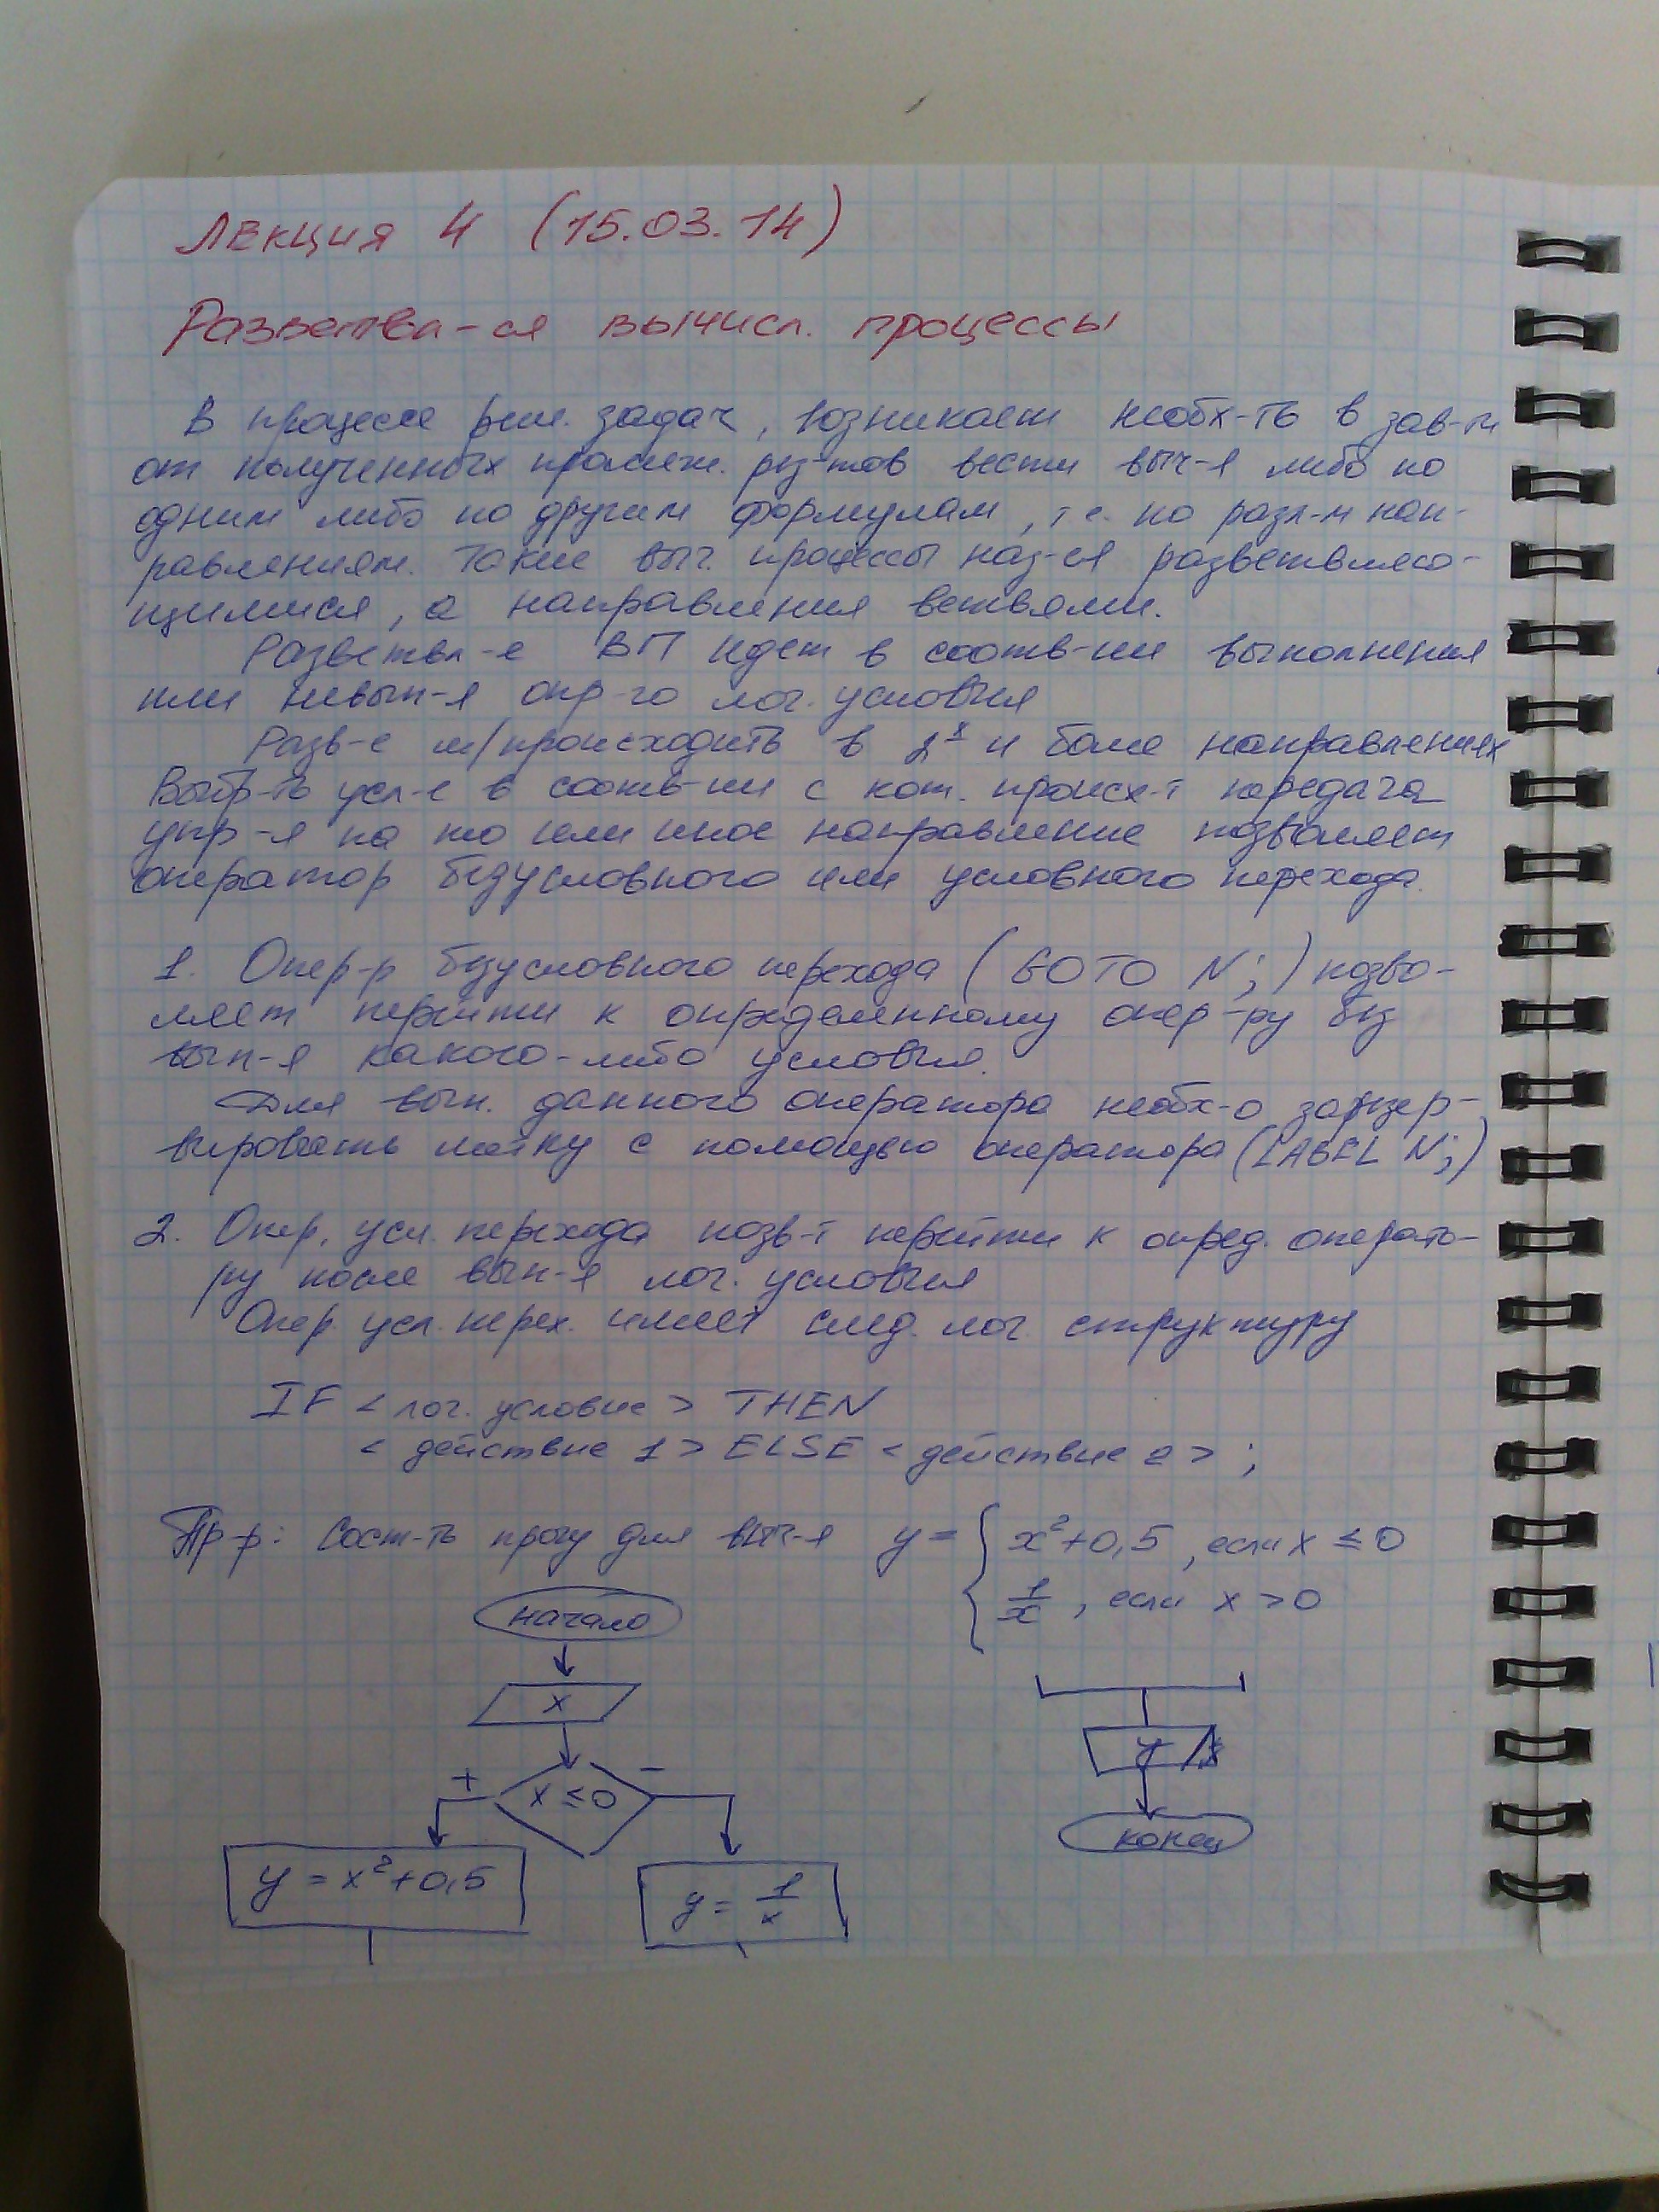 Лекция 4 (15.03.14)
Разветвл-ся вычисл. процессы
В процессе реш. задач, возникает необх-ть в зав-ти
от полученных промеж. рез-тов вести выч-я либо по
одним либо по другим формулам, т.е. по разл-м нап-
равлениям. Такие выч. процессы наз-ся разветвляю-
щимися, а направления ветвями.
Разветвл-е ВП идет в соотв-ии выполнения
или невып-я опр-го лог. условия
Разв-е м/происходить в 2х и более направлениях
Выбр-ть усл-е в соотв-ии с кот. происх-т передача
упр-я на то или иное направление позволяет
оператор безусловного или условного перехода.
1. Опер-р безусловного перехода (GOTO N;) позво-
ляет перейти к определенному опер-ру без
вып-я какого-либо условия.
Для вып. данного оператора необх-о зарезер-
вировать метку с помощью оператора (LABEL N;)
2. Опер. усл. перехода позв-т перейти к опред. операто-
ру после вып-я лог. условия
Опер. усл. перех. имеет след. лог. структуру
IF < лог. условие > THEN
< действие 1 > ELSE < действие 2 > ;
Пр-р: Сост-ть прогу для выч-я y = { x²+0,5, если x ≤ 0
1/x, если x > 0
начало
x
+ x ≤ 0 −
y = x²+0,5
y = 1/x
y
конец